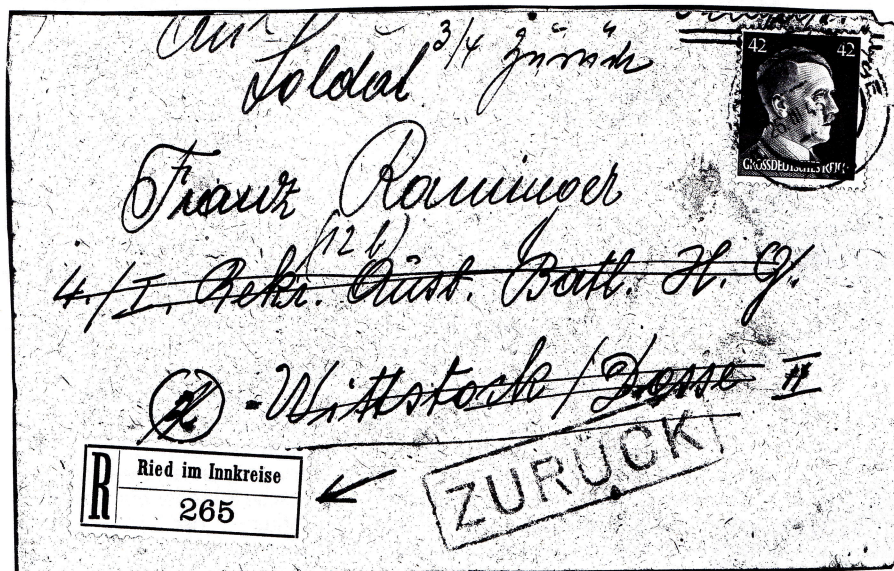 An
Soldat 3/4 Zurück
42 42
GROSSDEUTSCHES REICH
Franz Raminger
(12 b)
4./I. Rekr. Ausb. Batl. H. G.
2 - Wittstock / Dosse II
R Ried im Innkreise
265
ZURÜCK